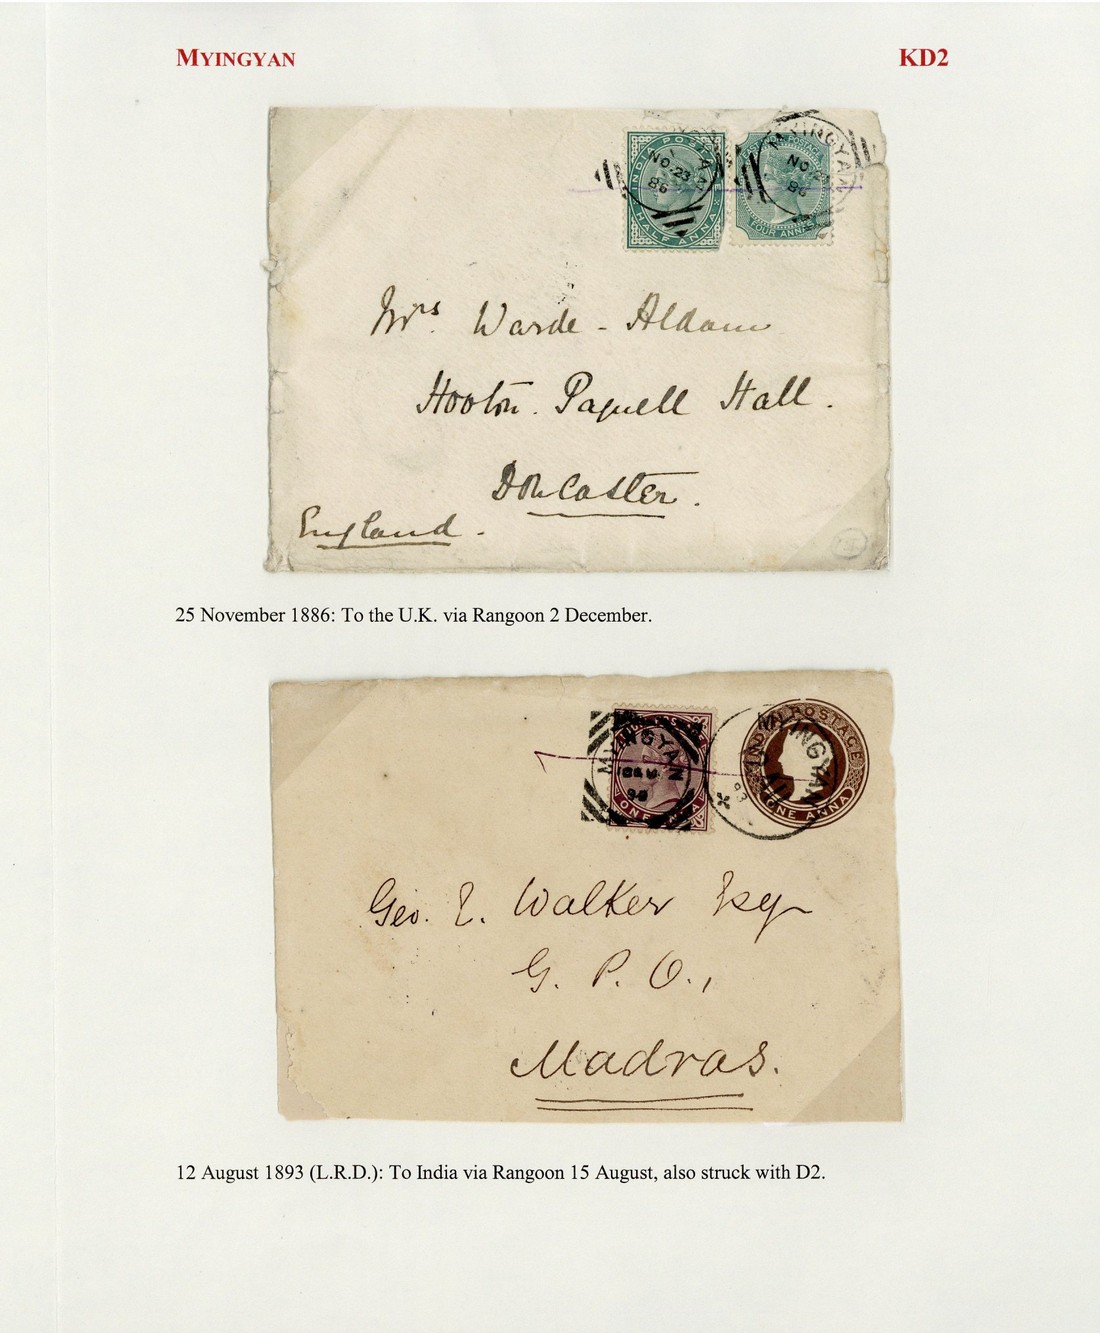 MYINGYAN
KD2
INDIA POSTAGE
HALF ANNA
MYINGYAN
NO. 23
86
FOUR ANNAS
MYINGYAN
NO. 2
86
Mrs. Warde - Aldam
Hooton. Pagnell Hall.
Doncaster.
England.
25 November 1886: To the U.K. via Rangoon 2 December.
MYINGYAN
ONE ANNA
INDIA POSTAGE
ONE ANNA
MYINGYAN
93
Geo. E. Walker Esq
G. P. O.,
Madras.
12 August 1893 (L.R.D.): To India via Rangoon 15 August, also struck with D2.